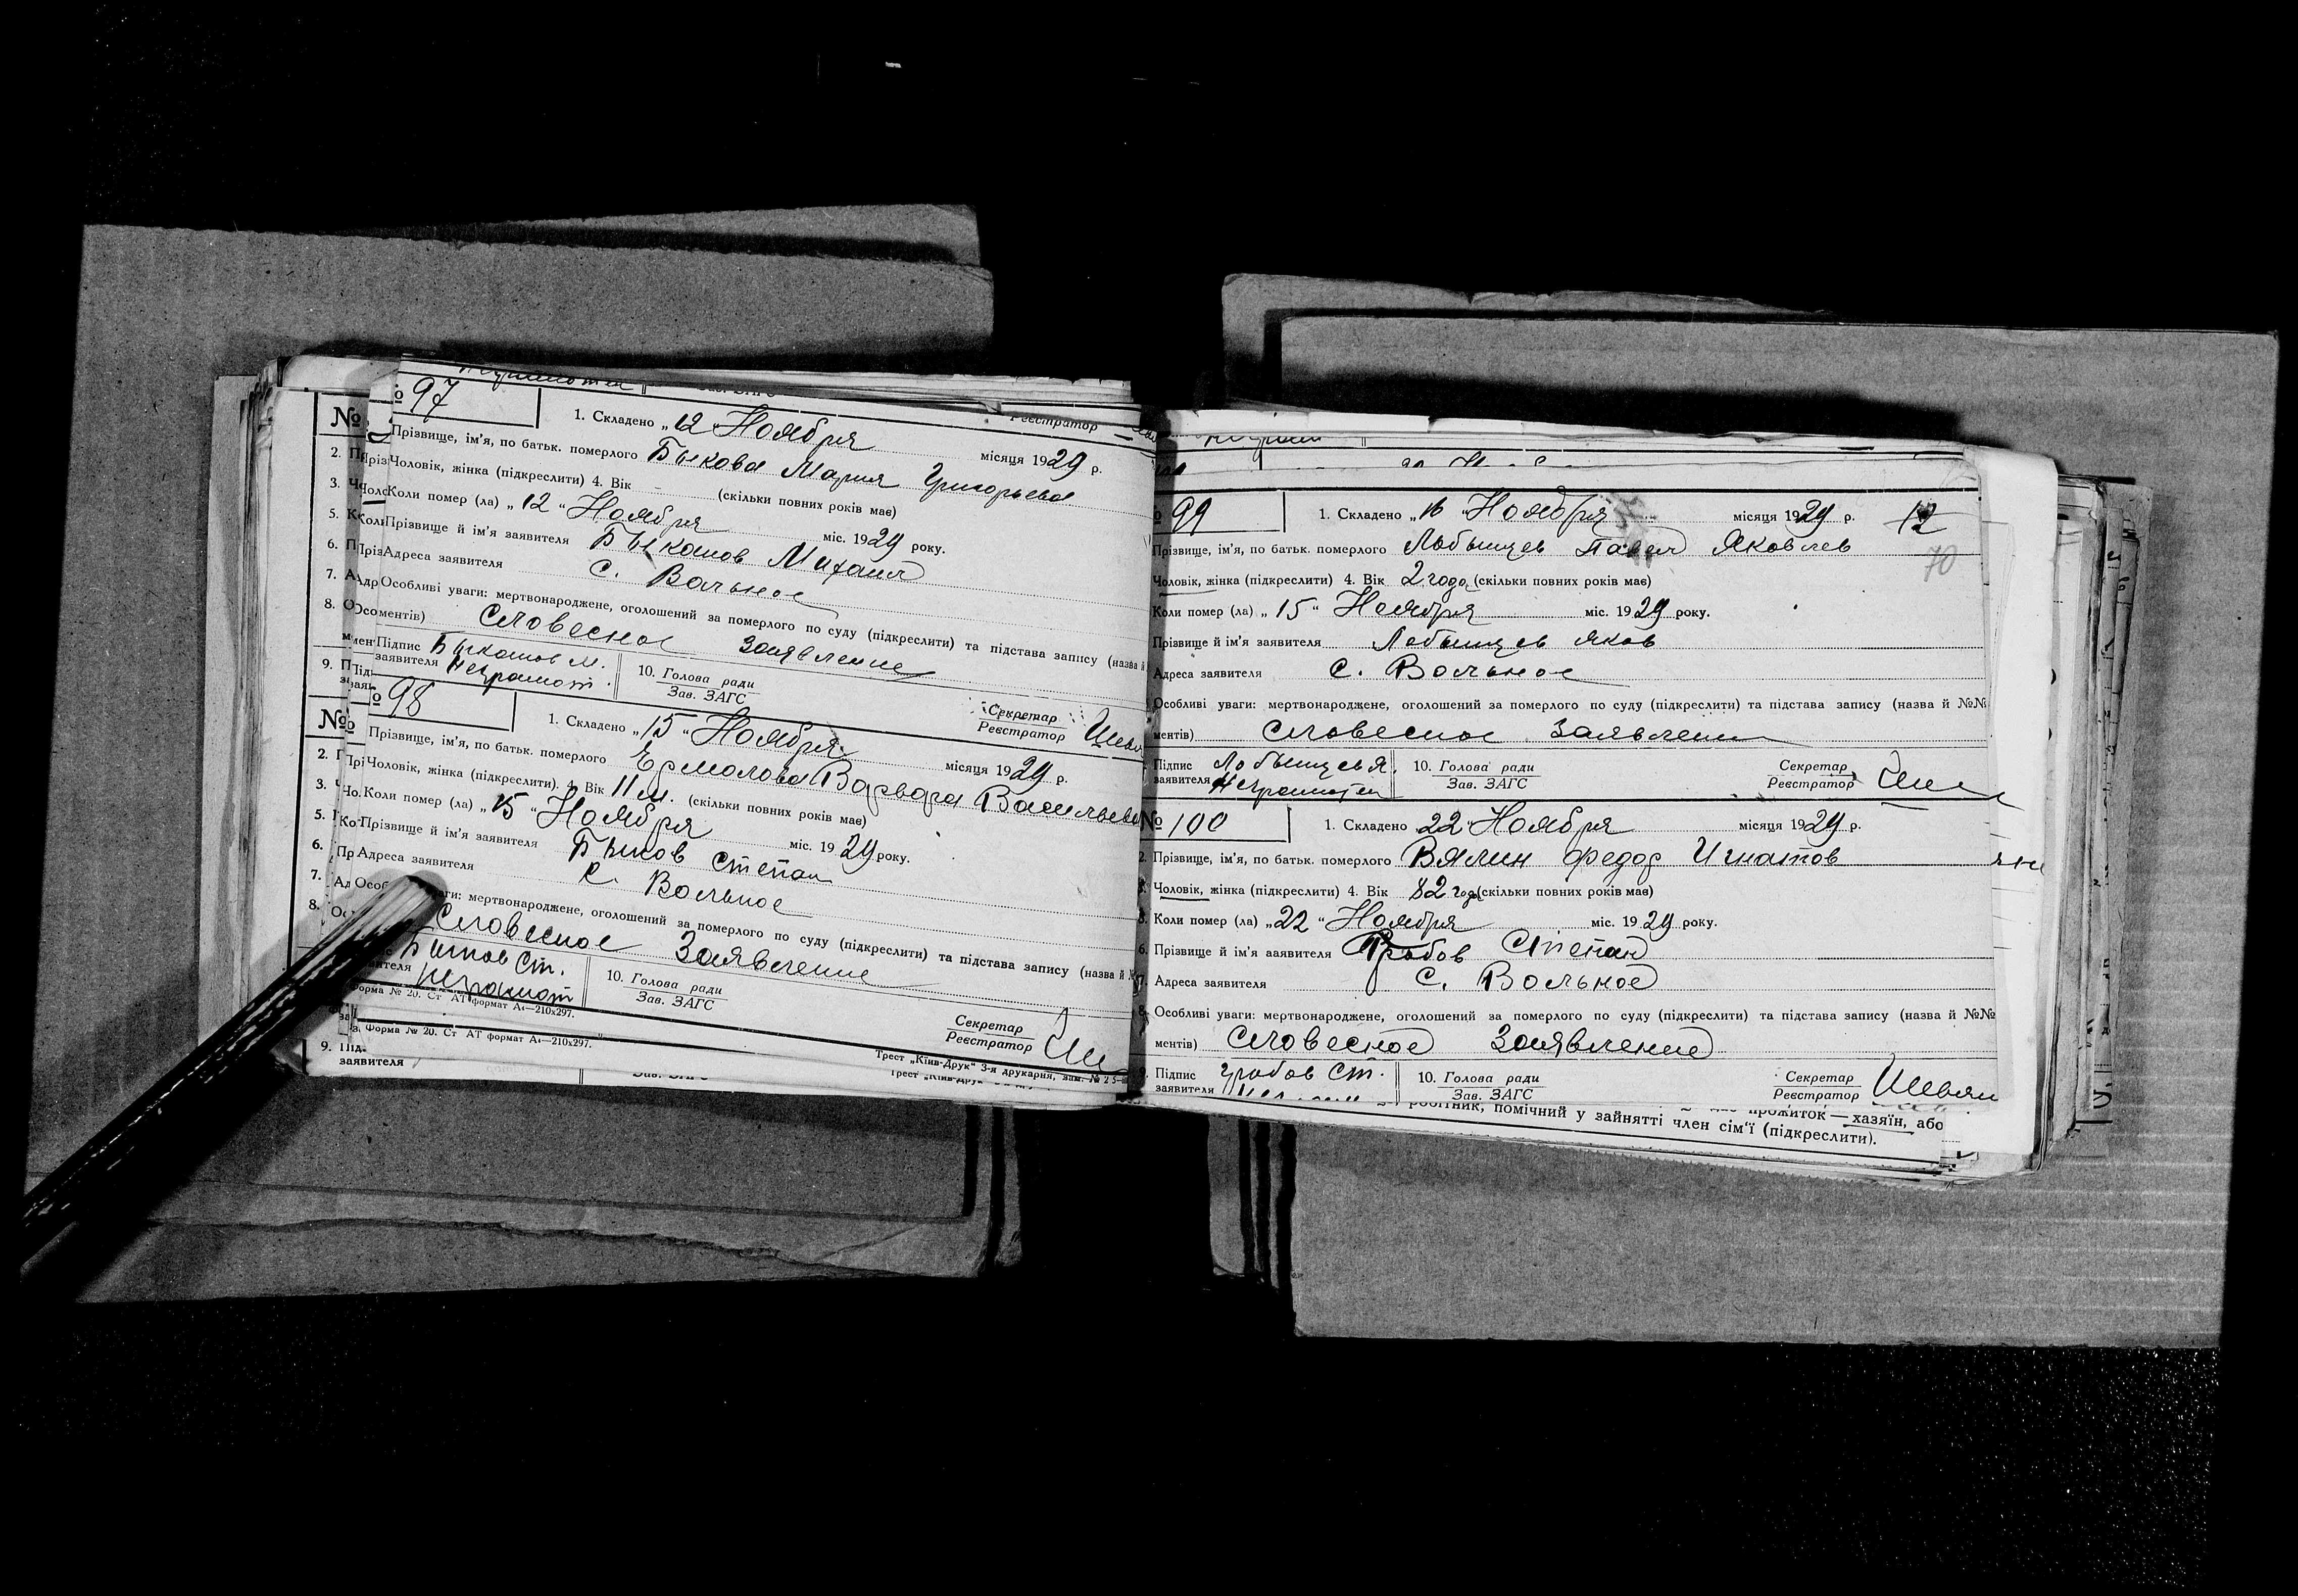 № 97
1. Складено „12“ Ноября місяця 1929 р.
Прізвище, ім'я, по батьк. померлого Быкова Мария Григорьева
Чоловік, жінка (підкреслити) 4. Вік – (скільки повних років має)
Коли помер (ла) „12“ Ноября міс. 1929 року.
Прізвище й ім'я заявителя Михаил
Адреса заявителя с. Вольное
Особливі уваги: мертвонароджене, оголошений за померлого по суду (підкреслити) та підстава запису (назва й
ментів) Словесное Заявление
Підпис заявителя М. Неграмот.
10. Голова ради
Зав. ЗАГС
Секретар
Реєстратор
№ 98
1. Складено „15“ Ноября місяця 1929 р.
Прізвище, ім'я, по батьк. померлого Ермолова Варвара Васильева
Чоловік, жінка (підкреслити). 4. Вік 11 м. (скільки повних років має)
Коли помер (ла) „15“ Ноября міс. 1929 року.
Прізвище й ім'я заявителя Быков Степан
Адреса заявителя с. Вольное
уваги: мертвонароджене, оголошений за померлого по суду (підкреслити) та підстава запису (назва й
Словесное Заявление
Ст. Неграмот
10. Голова ради
Зав. ЗАГС
Секретар
Реєстратор
Форма № 20. Ст АТ формат А₄—210х297.
Трест „Київ-Друк“ 3-я друкарня, зам. №
Форма № 20. Ст АТ формат А₄—210х297.
9. Під.
заявителя
99
1. Складено „16“ Ноября місяця 1929 р.
12
70
Прізвище, ім'я, по батьк. померлого Лобынцев Павел Яковлев
Чоловік, жінка (підкреслити) 4. Вік 2 года (скільки повних років має)
Коли помер (ла) „15“ Ноября міс. 1929 року.
Прізвище й ім'я заявителя Лобынцев Яков
Адреса заявителя с. Вольное
Особливі уваги: мертвонароджене, оголошений за померлого по суду (підкреслити) та підстава запису (назва й №№
ментів) Словесное Заявление
Підпис заявителя Лобынцев Я. Неграмотен
10. Голова ради
Зав. ЗАГС
Секретар
Реєстратор
№ 100
1. Складено „22“ Ноября місяця 1929 р.
2. Прізвище, ім'я, по батьк. померлого Вялин Федор Игнатов
Чоловік, жінка (підкреслити) 4. Вік 82 года (скільки повних років має)
Коли помер (ла) „22“ Ноября міс. 1929 року.
6. Прізвище й ім'я заявителя Грабов Степан
Адреса заявителя с. Вольное
Особливі уваги: мертвонароджене, оголошений за померлого по суду (підкреслити) та підстава запису (назва й №№
ментів) Словесное Заявление
Підпис заявителя Грабов Ст.
10. Голова ради
Зав. ЗАГС
Секретар
Реєстратор
робітник, помічний у зайнятті член сім'ї (підкреслити).
прожиток — хазяїн, або